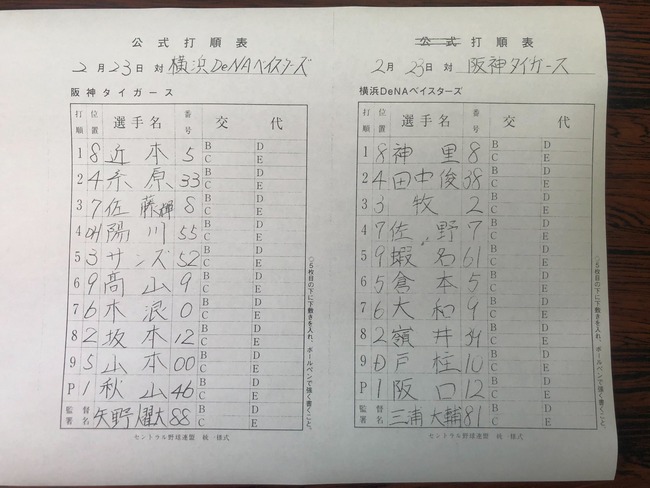 公式打順表
2月23日 対 横浜DeNAベイスターズ
阪神タイガース
打順 位置 選手名 番号 交代
1 8 近本 5 B C D E
2 4 糸原 33 B C D E
3 7 佐藤輝 8 B C D E
4 DH 陽川 55 B C D E
5 3 サンズ 52 B C D E
6 9 高山 9 B C D E
7 6 木浪 0 B C D E
8 2 坂本 12 B C D E
9 5 山本 00 B C D E
P 1 秋山 46 B C D E
監督署名 矢野燿大 88 B C D E
セントラル野球連盟 統一様式
○5枚目の下に下敷きを入れ、ボールペンで強く書くこと。
公式打順表
2月23日 対 阪神タイガース
横浜DeNAベイスターズ
打順 位置 選手名 番号 交代
1 8 神里 8 B C D E
2 4 田中俊 38 B C D E
3 3 牧 2 B C D E
4 7 佐野 7 B C D E
5 9 蝦名 61 B C D E
6 5 倉本 5 B C D E
7 6 大和 9 B C D E
8 2 嶺井 39 B C D E
9 D 戸柱 10 B C D E
P 1 阪口 12 B C D E
監督署名 三浦大輔 81 B C D E
セントラル野球連盟 統一様式
○5枚目の下に下敷きを入れ、ボールペンで強く書くこと。